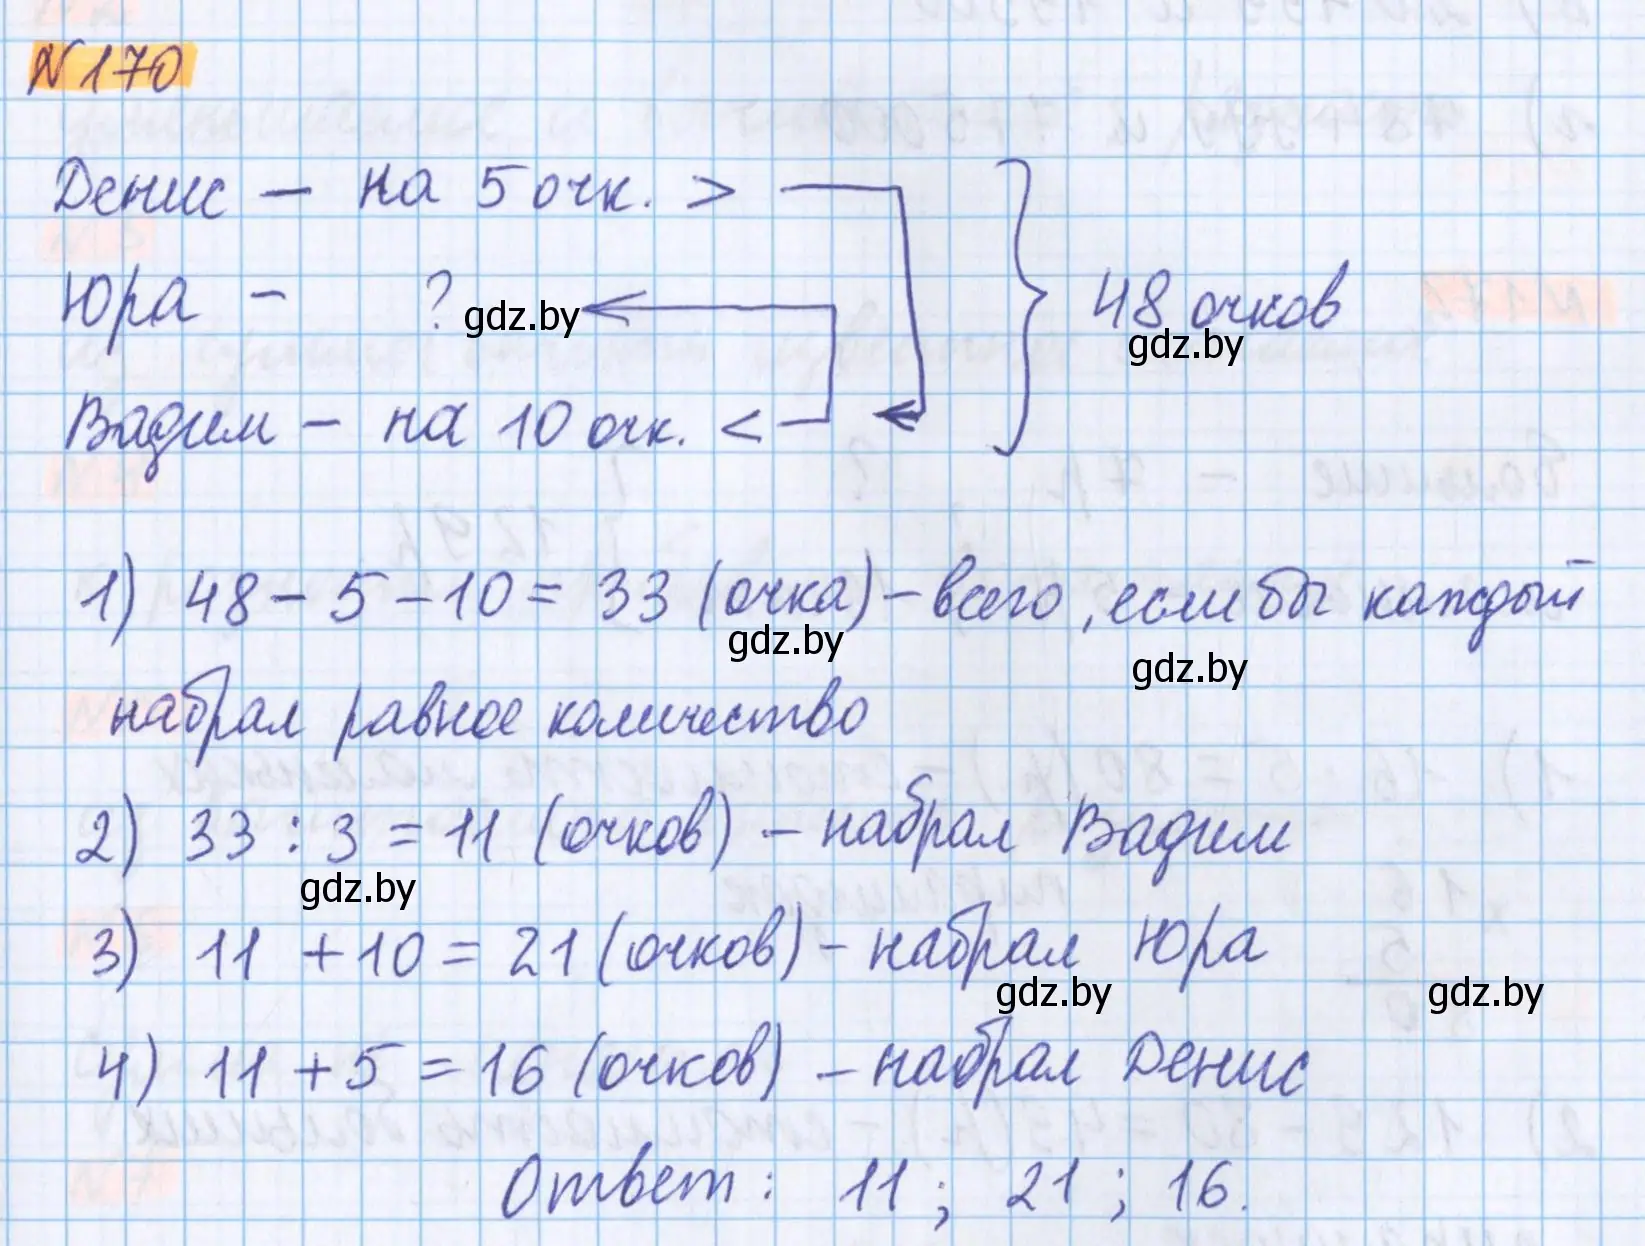 N 170
Денис – на 5 очк. >
Юра – ?
gdz.by
48 очков
gdz.by
Вадим – на 10 очк. <
1) 48 – 5 – 10 = 33 (очка) – всего, если бы каждый
gdz.by
gdz.by
набрал равное количество
2) 33 : 3 = 11 (очков) – набрал Вадим
gdz.by
3) 11 + 10 = 21 (очков) – набрал Юра
gdz.by
gdz.by
4) 11 + 5 = 16 (очков) – набрал Денис
Ответ: 11; 21; 16.